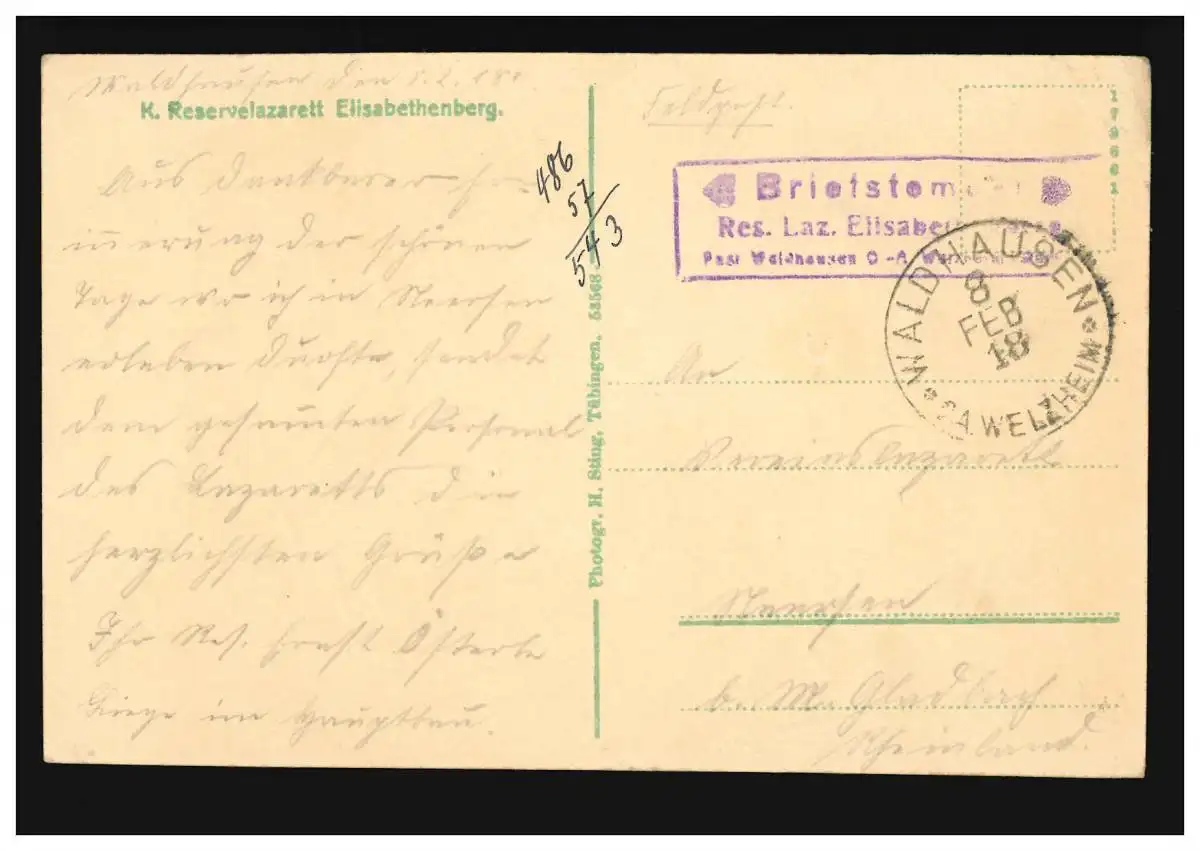 Waldhausen den 8.2.18.
K. Reservelazarett Elisabethenberg.
Aus dankbarer Er-
innerung der schönen
Tage wo ich in Neersen
erleben durfte, sendet
dem gesamten Personal
des Lazaretts die
herzlichsten Grüße
Ihr Res. Ernst Österle
Liege im Hauptbau.
486
57
543
Photogr. H. Sting, Tübingen. 53568
Feldpost.
179661
Briefstempel
Res. Laz. Elisabethenberg
Post Waldhausen O.-A. Welzheim
WALDHAUSEN
8
FEB
18
O.A. WELZHEIM
An
Vereinslazarett
Neersen
b. M. Gladbach
Rheinland.